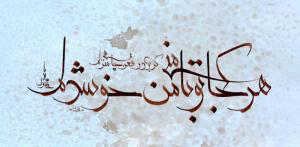 هر کجا تو با منی من خوشدلم
گر بود در قعر چاهی منزلم